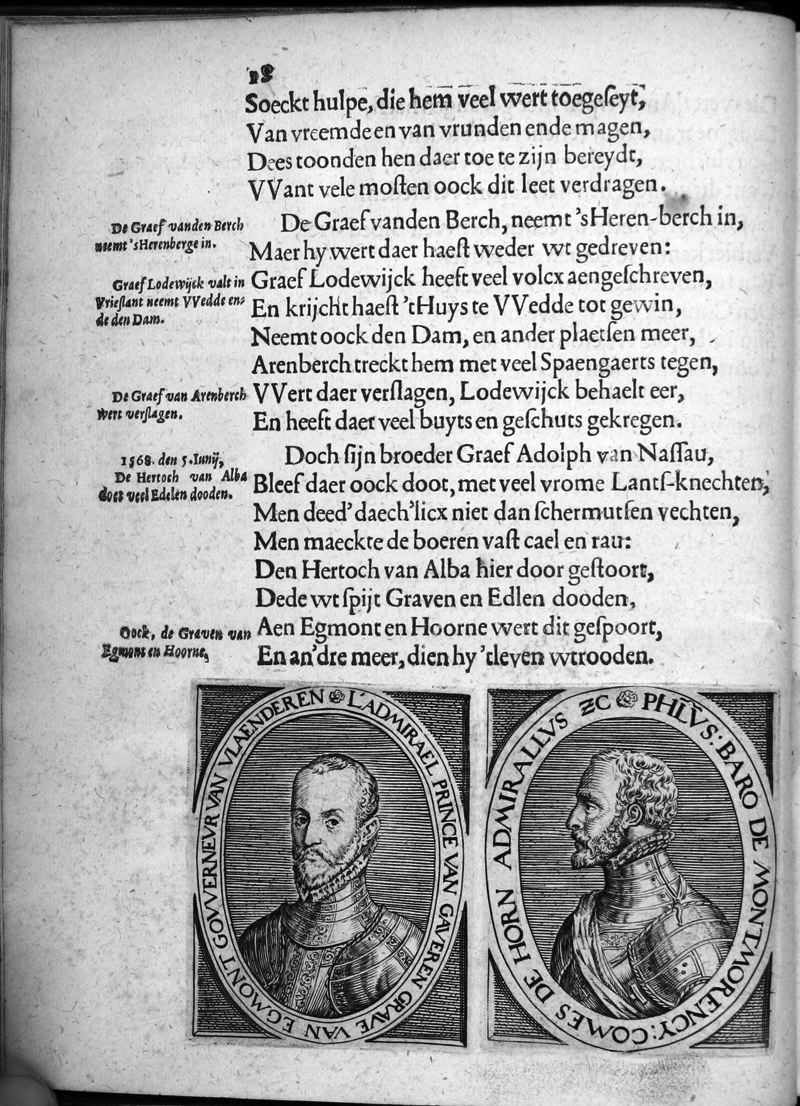 18
Soeckt hulpe, die hem veel wert toegeſeyt,
Van vreemde en van vrunden ende magen,
Dees toonden hen daer toe te zijn bereydt,
VVant vele moſten oock dit leet verdragen.
De Graef vanden Berch
neemt 'sHerenberge in.
De Graef vanden Berch, neemt 'sHeren-berch in,
Maer hy wert daer haeſt weder wt gedreven:
Graef Lodewijck valt in
Vrieſlant neemt VVedde en-
de den Dam.
Graef Lodewijck heeft veel volcx aengeſchreven,
En krijcht haeſt 't Huys te VVedde tot gewin,
Neemt oock den Dam, en ander plaetſen meer,
Arenberch treckt hem met veel Spaengaerts tegen,
De Graef van Arenberch
wert verſlagen.
VVert daer verſlagen, Lodewijck behaelt eer,
En heeft daer veel buyts en geſchuts gekregen.
1568. den 5. Iunij,
De Hertoch van Alba
doet veel Edelen dooden.
Doch ſijn broeder Graef Adolph van Naſſau,
Bleef daer oock doot, met veel vrome Lantſ-knechten,
Men deed' daech'licx niet dan ſchermutſen vechten,
Men maeckte de boeren vaſt cael en rau:
Den Hertoch van Alba hier door geſtoort,
Dede wt ſpijt Graven en Edlen dooden,
Oock, de Graven van
Egmont en Hoorne,
Aen Egmont en Hoorne wert dit geſpoort,
En an'dre meer, dien hy 'tleven wtrooden.
L'ADMIRAEL PRINCE VAN GAVEREN GRAVE VAN EGMONT GOVVERNEVR VAN VLAENDEREN
PHL̃VS: BARO DE MONTMORENCY: COMES DE HORN ADMIRALLVS ZC